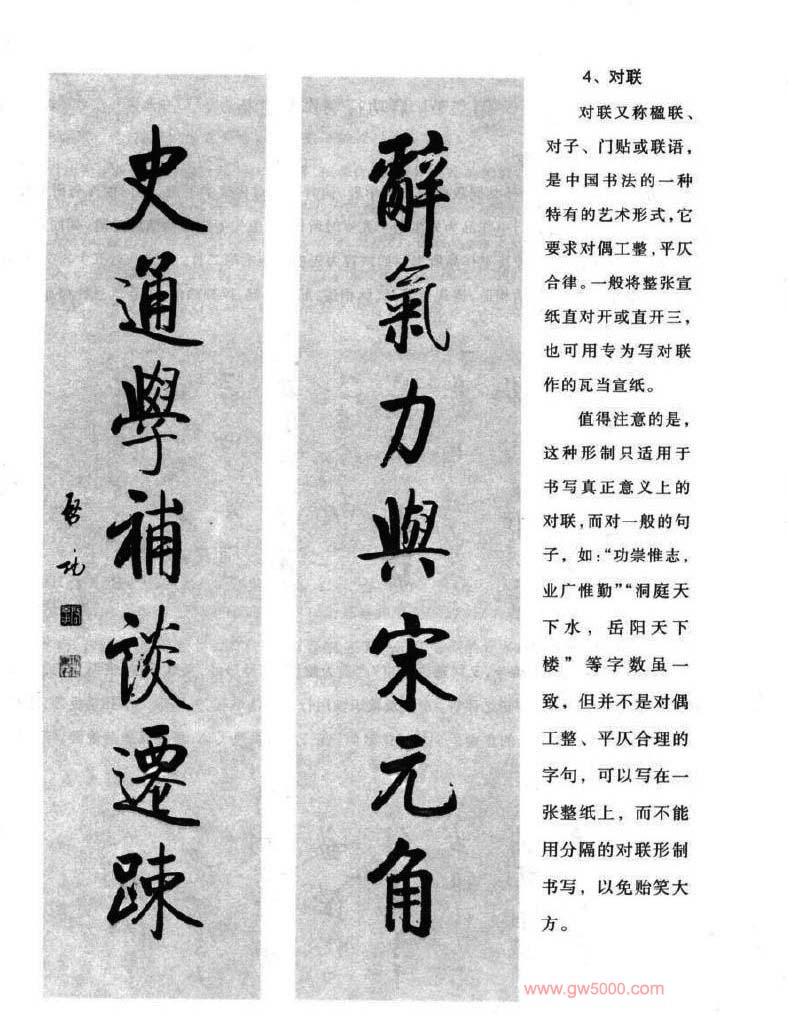 辭氣力與宋元角
史通學補談遷疎
啓功
4、对联
对联又称楹联、
对子、门贴或联语，
是中国书法的一种
特有的艺术形式，它
要求对偶工整，平仄
合律。一般将整张宣
纸直对开或直开三，
也可用专为写对联
作的瓦当宣纸。
值得注意的是，
这种形制只适用于
书写真正意义上的
对联，而对一般的句
子，如：“功崇惟志，
业广惟勤”“洞庭天
下水，岳阳天下
楼”等字数虽一
致，但并不是对偶
工整、平仄合理的
字句，可以写在一
张整纸上，而不能
用分隔的对联形制
书写，以免贻笑大
方。
www.gw5000.com